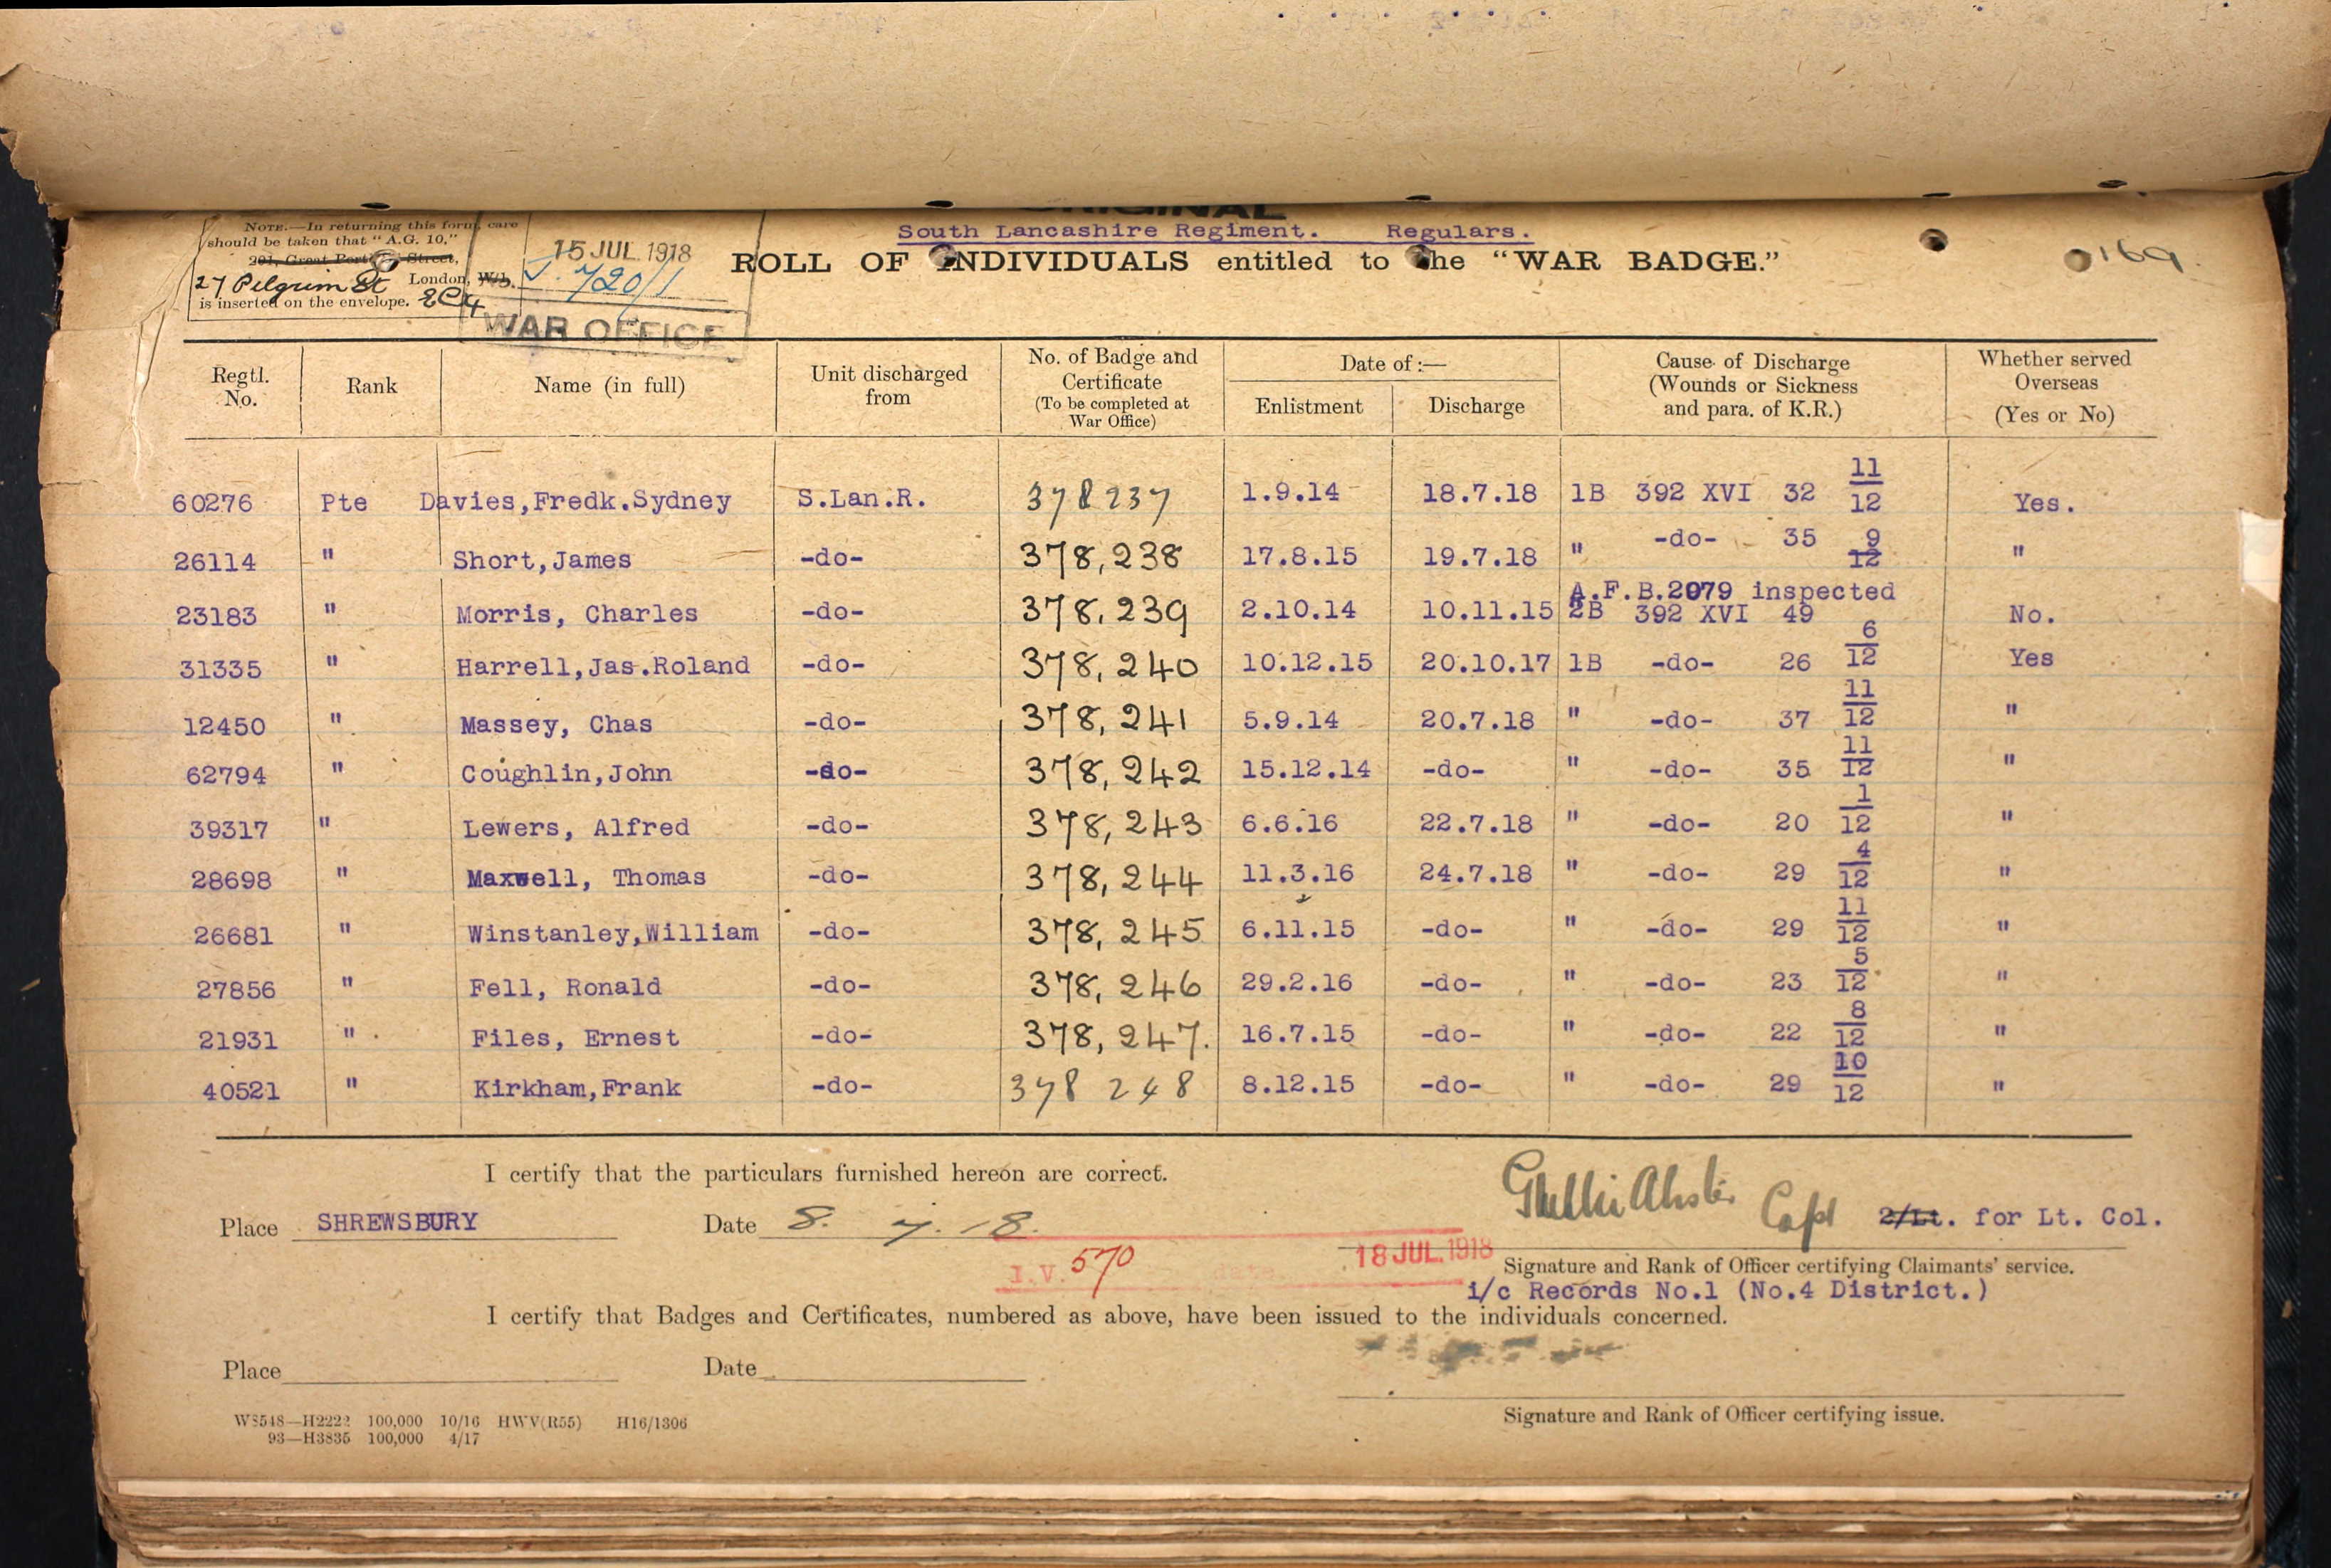 ORIGINAL
NOTE.—In returning this form, care
should be taken that "A.G. 10,"
201, Great Portland Street,
27 Pilgrim St London, W.
is inserted on the envelope. EC4
15 JUL 1918
J. 720/1
WAR OFFICE
South Lancashire Regiment. Regulars.
ROLL OF INDIVIDUALS entitled to the "WAR BADGE."
169.
Regtl. No. Rank Name (in full) Unit discharged from No. of Badge and Certificate (To be completed at War Office) Date of :— Enlistment Discharge Cause of Discharge (Wounds or Sickness and para. of K.R.) Whether served Overseas (Yes or No)
60276 Pte Davies,Fredk.Sydney S.Lan.R. 378237 1.9.14 18.7.18 1B 392 XVI 32 11/12 Yes.
26114 " Short,James -do- 378,238 17.8.15 19.7.18 " -do- 35 9/12 "
A.F.B.2079 inspected
23183 " Morris, Charles -do- 378,239 2.10.14 10.11.15 2B 392 XVI 49 No.
31335 " Harrell,Jas.Roland -do- 378,240 10.12.15 20.10.17 1B -do- 26 6/12 Yes
12450 " Massey, Chas -do- 378,241 5.9.14 20.7.18 " -do- 37 11/12 "
62794 " Coughlin,John -do- 378,242 15.12.14 -do- " -do- 35 11/12 "
39317 " Lewers, Alfred -do- 378,243 6.6.16 22.7.18 " -do- 20 1/12 "
28698 " Maxwell, Thomas -do- 378,244 11.3.16 24.7.18 " -do- 29 4/12 "
26681 " Winstanley,William -do- 378,245 6.11.15 -do- " -do- 29 11/12 "
27856 " Fell, Ronald -do- 378,246 29.2.16 -do- " -do- 23 5/12 "
21931 " Files, Ernest -do- 378,247. 16.7.15 -do- " -do- 22 8/12 "
40521 " Kirkham,Frank -do- 378 248 8.12.15 -do- " -do- 29 10/12 "
I certify that the particulars furnished hereon are correct.
Place SHREWSBURY Date 8. 7. 18. Capt 2/Lt. for Lt. Col.
I.V. 570 18 JUL 1918
Signature and Rank of Officer certifying Claimants' service.
i/c Records No.1 (No.4 District.)
I certify that Badges and Certificates, numbered as above, have been issued to the individuals concerned.
Place Date
Signature and Rank of Officer certifying issue.
W8548—H2222 100,000 10/16 HWV(R55) H16/1306
93—H3835 100,000 4/17